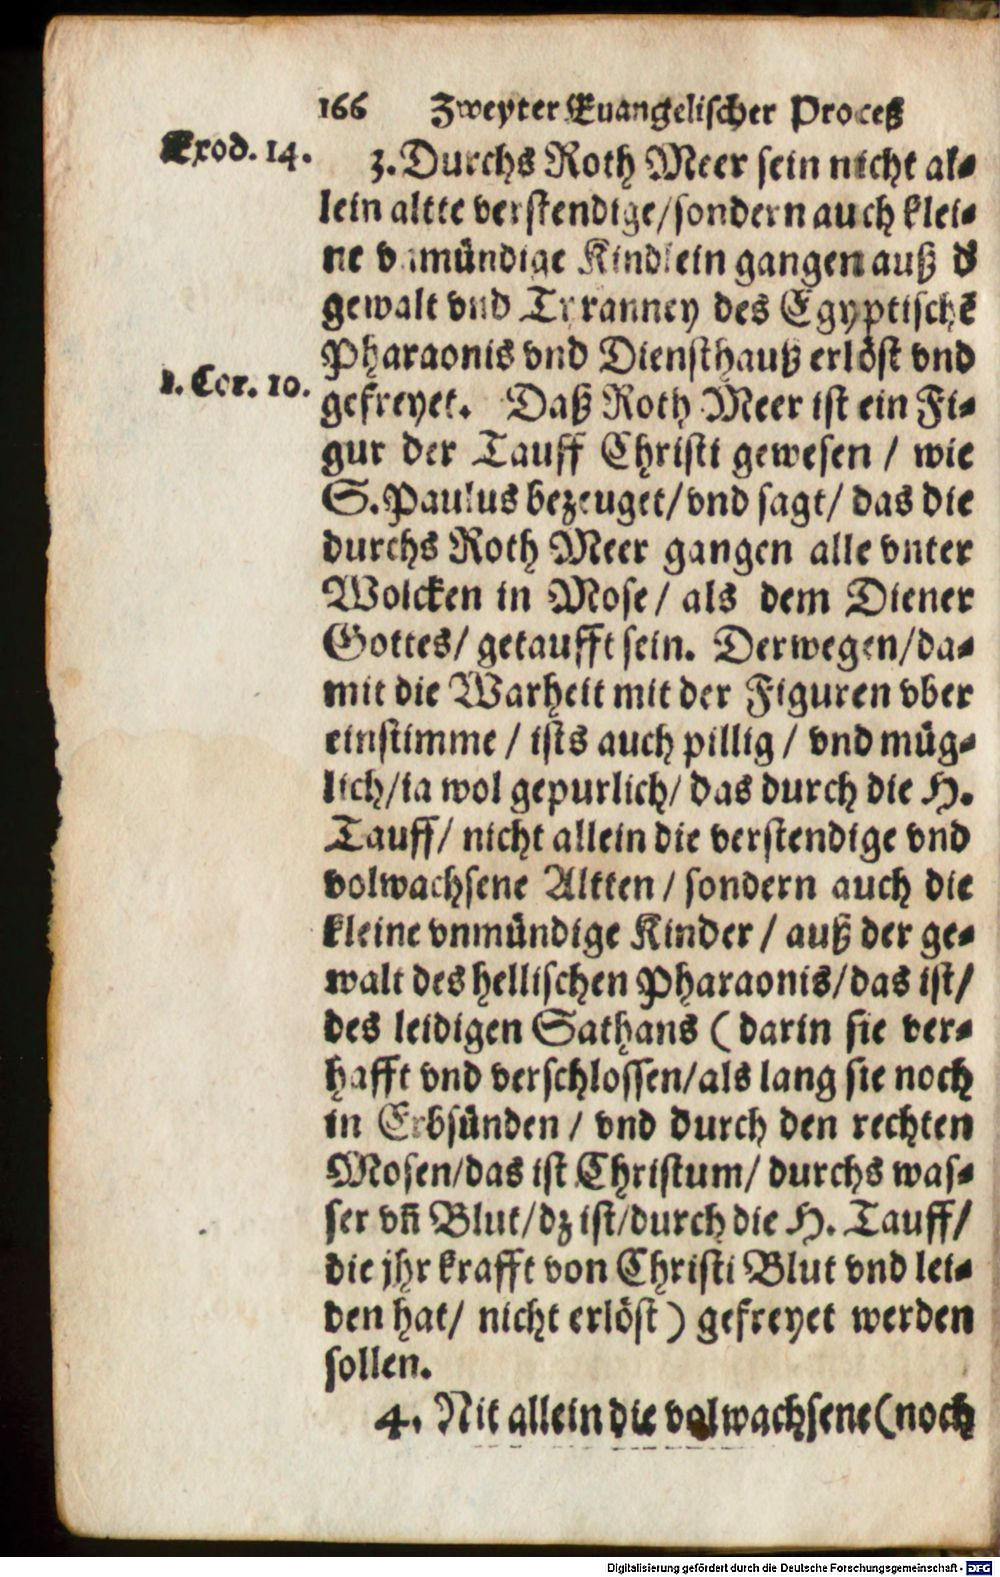 166 Zweyter Euangelischer Proceß
Exod. 14.
3. Durchs Roth Meer sein nicht al-
lein altte verstendige/sondern auch klei-
ne vnmündige Kindlein gangen auß d̕
gewalt vnd Tyranney des Egyptischẽ
Pharaonis vnd Diensthauß erlöst vnd
1. Cor. 10.
gefreyet. Daß Roth Meer ist ein Fi-
gur der Tauff Christi gewesen / wie
S. Paulus bezeuget/ vnd sagt/ das die
durchs Roth Meer gangen alle vnter
Wolcken in Mose/ als dem Diener
Gottes/ getaufft sein. Derwegen/da-
mit die Warheit mit der Figuren vber
einstimme / ists auch pillig / vnd müg-
lich/ia wol gepurlich/ das durch die H.
Tauff/ nicht allein die verstendige vnd
volwachsene Altten / sondern auch die
kleine vnmündige Kinder / auß der ge-
walt des hellischen Pharaonis/das ist/
des leidigen Sathans ( darin sie ver-
hafft vnd verschlossen/als lang sie noch
in Erbsünden / vnd durch den rechten
Mosen/das ist Christum/ durchs was-
ser vñ Blut/dz ist/durch die H. Tauff/
die jhr krafft von Christi Blut vnd lei-
den hat/ nicht erlöst ) gefreyet werden
sollen.
4. Nit allein die volwachsene (noch
Digitalisierung gefördert durch die Deutsche Forschungsgemeinschaft - DFG